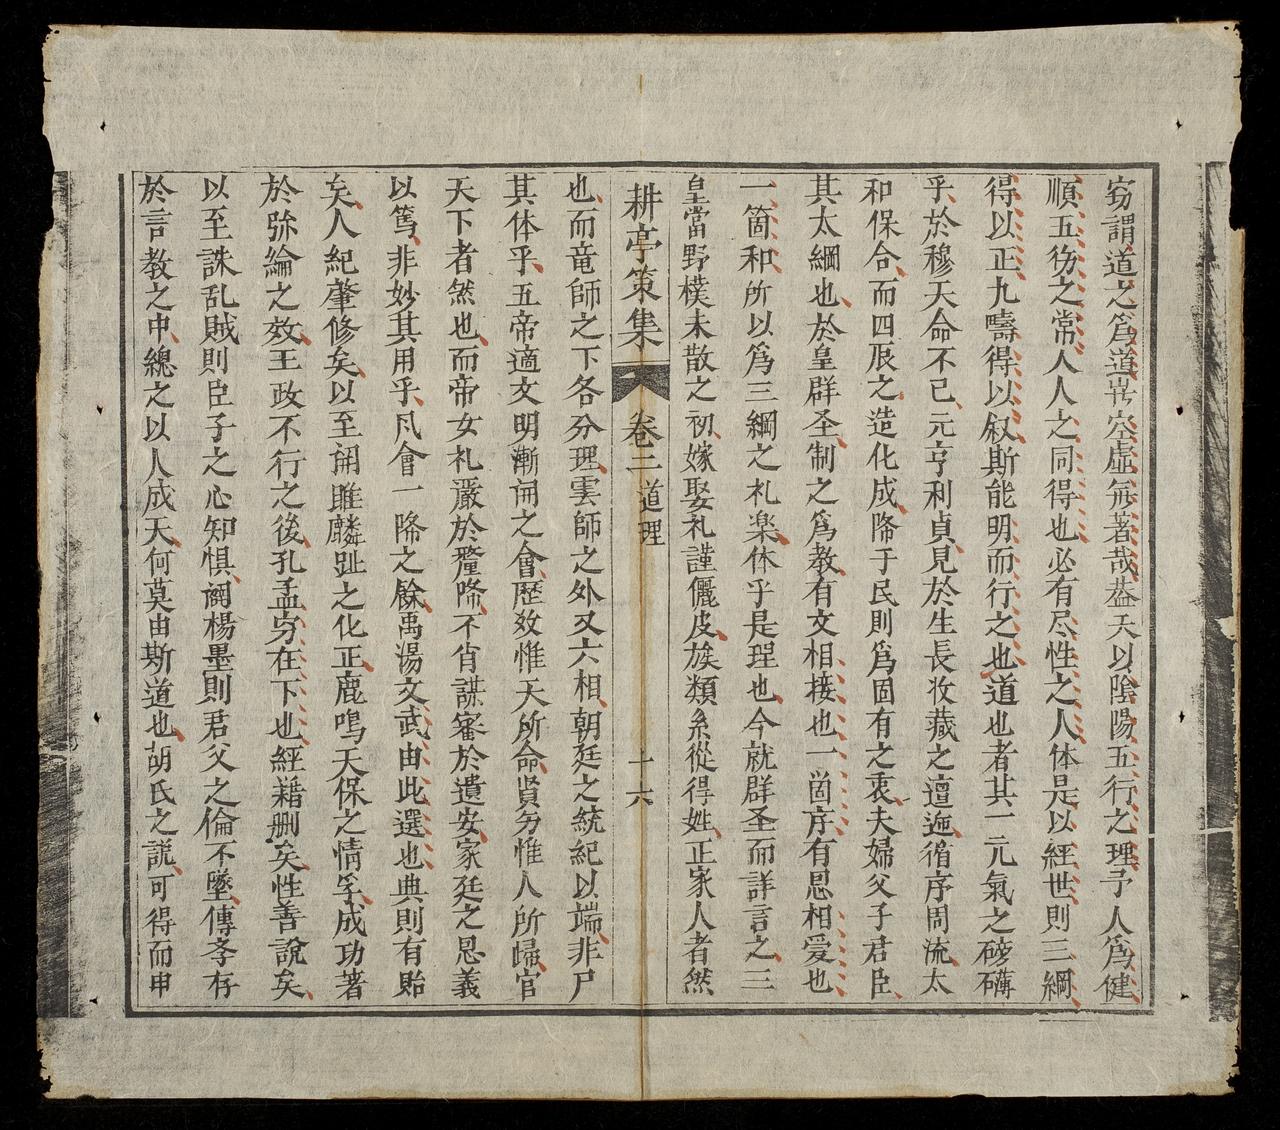 窃謂道之爲道豈空虛無著哉盖天以陰陽五行之理予人爲健
順五彷之常人人之同得也必有尽性之人体是以經世則三綱
得以正九疇得以叙斯能明而行之也道也者其一元氣之磅礴
乎於穆天命不已元亨利貞見於生長收藏之邅迤循序周流太
和保合而四辰之造化成降于民則爲固有之衷夫婦父子君臣
其太綱也於皇群圣制之爲教有文相接也一箇序有恩相愛也
一箇和所以爲三綱之礼楽体乎是理也今就群圣而詳言之三
皇當野樸未散之初嫁娶礼謹儷皮族類系從得姓正家人者然
耕亭策集 卷二 道理 十六
也而竜師之下各分理雲師之外又六相朝廷之統紀以端非尸
其体乎五帝適文明漸開之會歴效惟天所命賢穷惟人所歸官
天下者然也而帝女礼嚴於釐降不肖謀審於遺安家廷之恩義
以篤非妙其用乎凡會一降之餘禹湯文武由此選也典則有貽
矣人紀肇修矣以至開雎麟趾之化正鹿鳴天保之情孚成功著
於弥綸之效王政不行之後孔孟穷在下也經藉删矣性善說矣
以至誅乱賊則臣子之心知惧闢楊墨則君父之倫不墜傳孝存
於言教之中總之以人成天何莫由斯道也胡氏之説可得而申